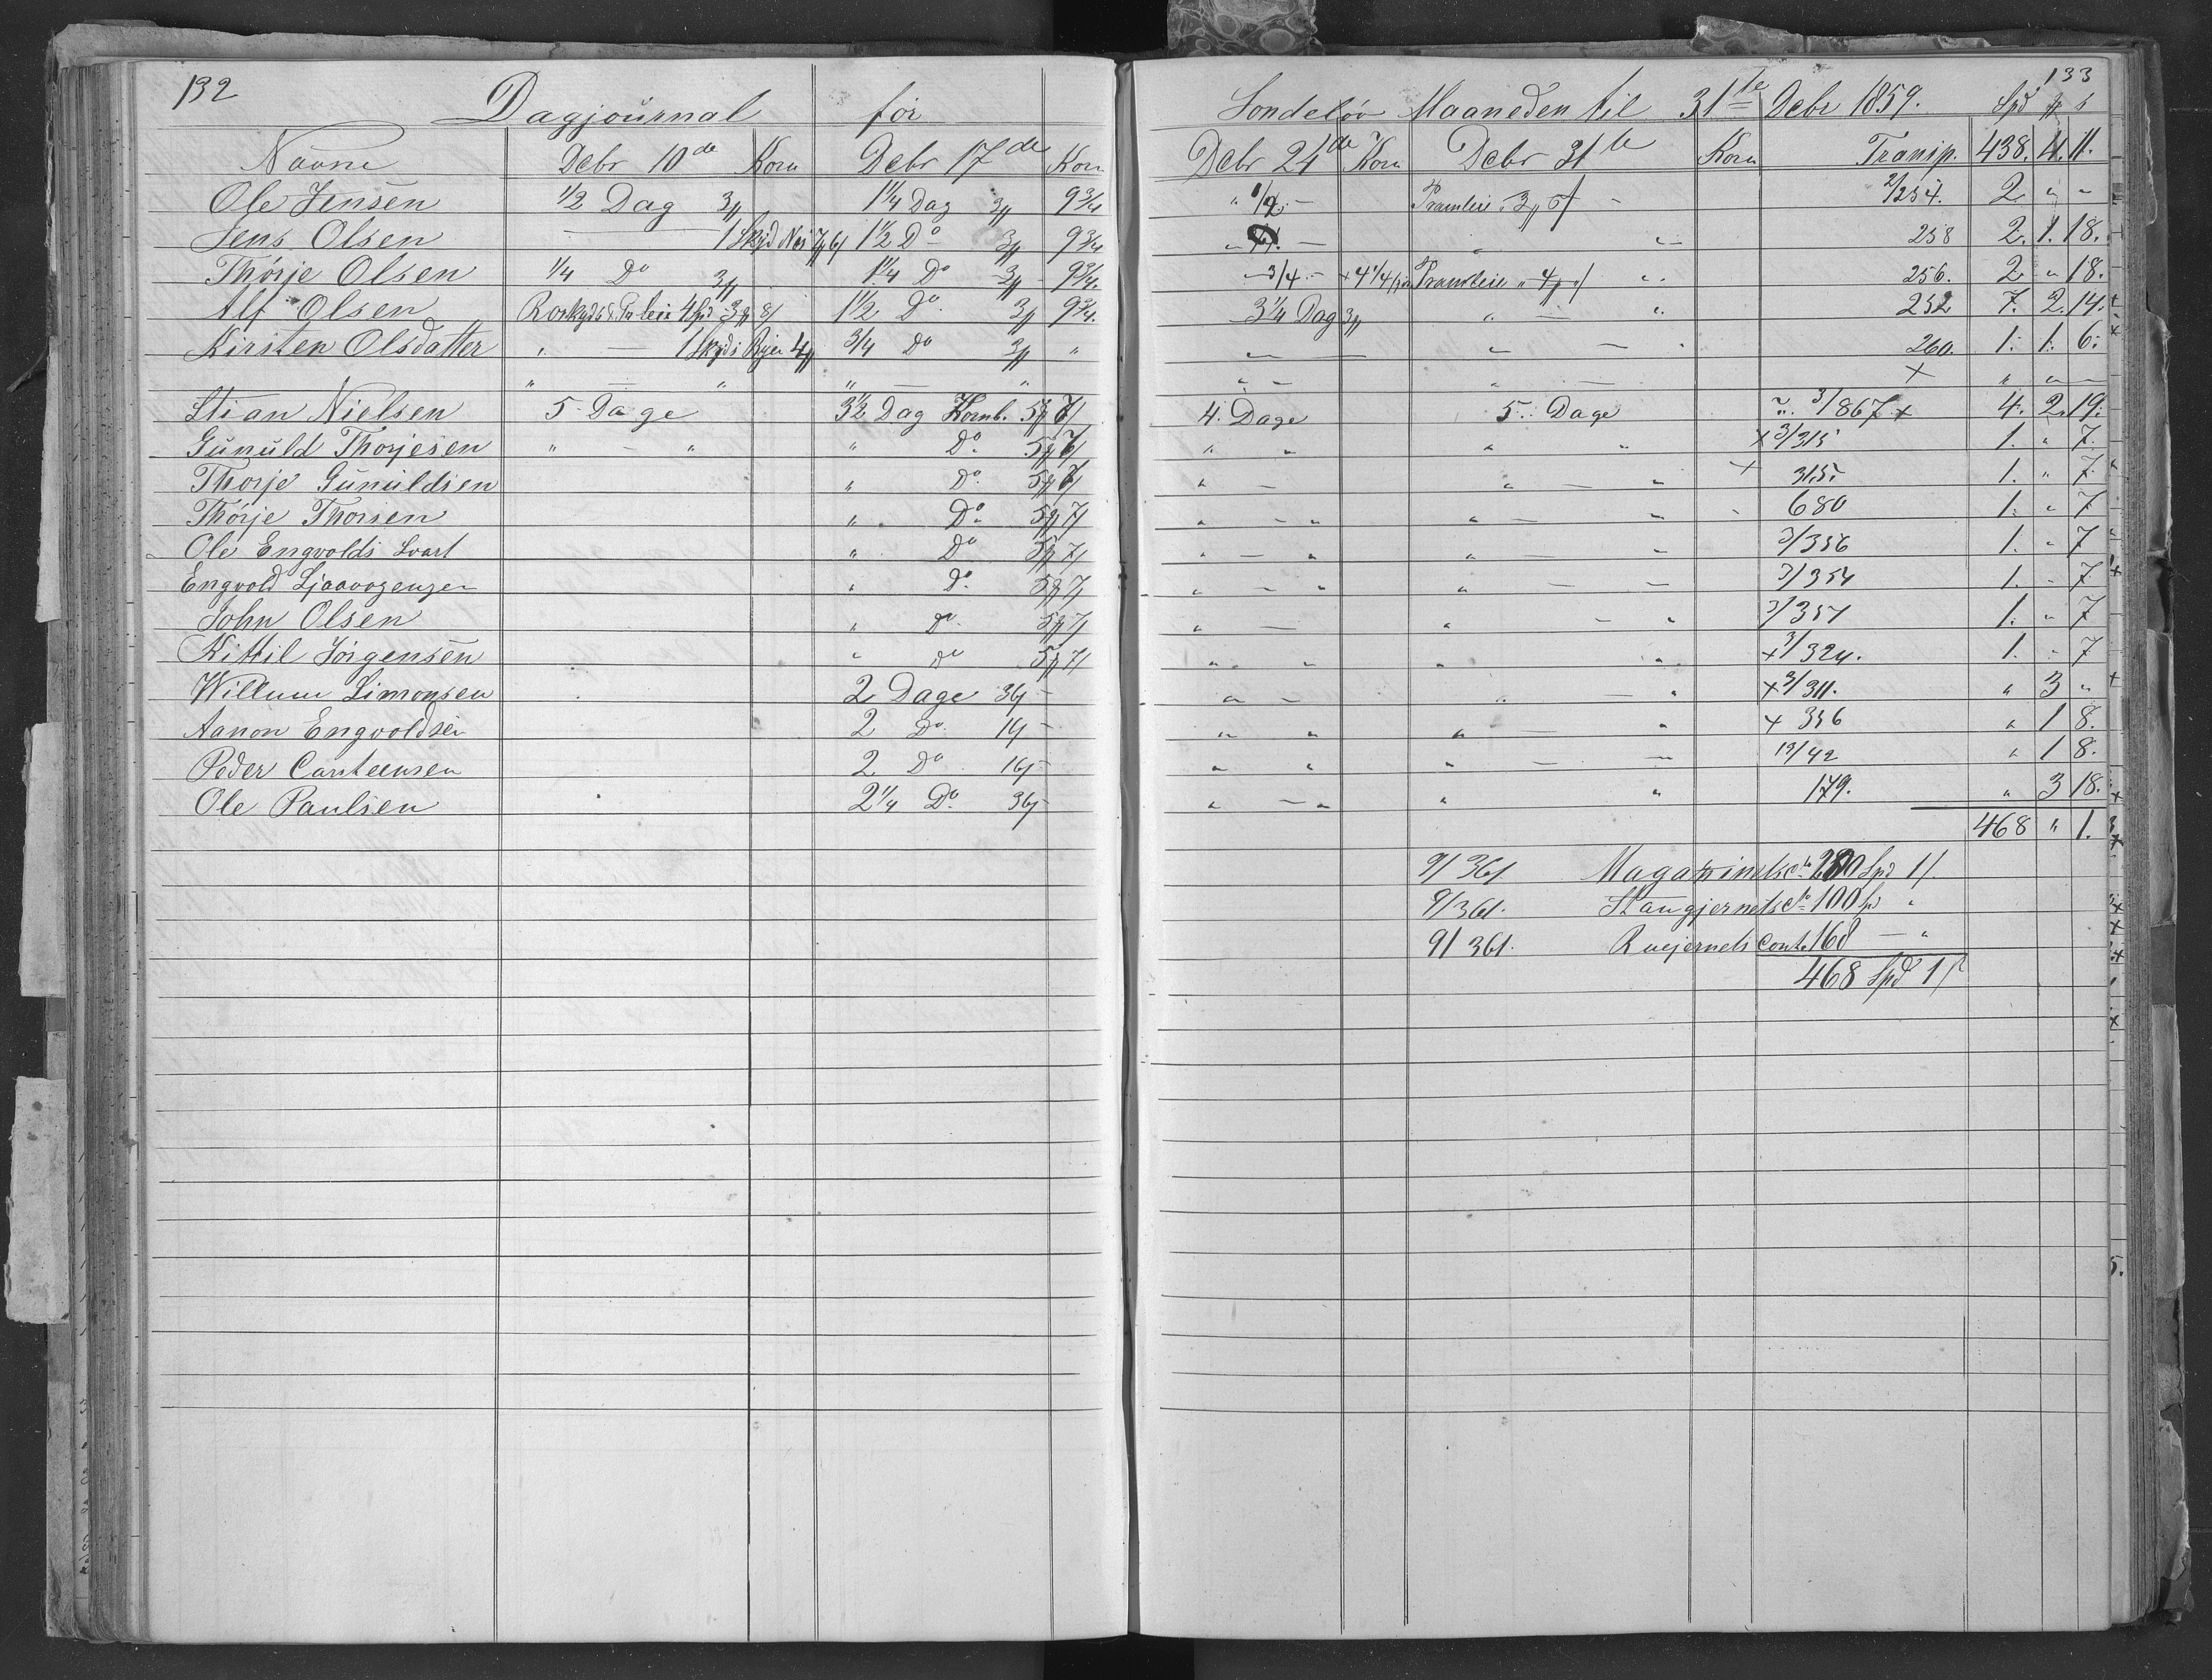 132
Dagjournal for
Navne Debr 10de Korn Debr 17de Korn
Ole Jensen 1/2 Dag 3 1 1/4 Dag 3 9 3/4
Jens Olsen — 1 Skyds Næs 1 1/2 Do 3 9 3/4
Thorje Olsen 1/4 Do 3 1 1/4 Do 3 9 3/4
Alf Olsen 4 Spd 3 8 1 1/2 Do 3 9 3/4
Kirsten Olsdatter " — 1 Skyds 4 3/4 Do 3 "
" — " " — "
Stian Nielsen 5 Dage 3 1/2 Dag Kornb. 5 7
Gunuld Thorjesen " — " " Do 5 7
Thorje Gunuldsen " Do 5 7
Thorje Thorsen " Do 5 7
Ole Engvolds Svart " Do 5 7
Engvold " Do 5 7
John Olsen " Do 5 7
Kittil Jörgensen " Do 5 7
Willum Simonsen 2 Dage 36 —
Aanon Engvoldsen 2 Do 16 —
Peder Carsteensen 2 Do 16 —
Ole Paulsen 2 1/4 Do 36 —
133
Sondeløv Maaneden til 31te Debr 1859. Spd
Debr 24de Korn Debr 31te Korn Transp. 438. 4. 11.
" 1/2 — Pramleie 3 — 2/254. 2 " "
" — " " 258 2. 1. 18.
" 3/4 — + 4 1/4 Pramleie " 4 " 256. 2 " 18.
3 1/4 Dag 3 " — " 252 7. 2. 14.
" — " — " 260. 1. 1. 6.
" — " — × " " —
4. Dage 5. Dage 3/867 × 4. 2. 19.
" " " " × 3/315 1. " 7.
" — " — " × 315. 1. " 7.
" — " " — " 680 1. " 7
" — " " — " 3/356 1. " 7
" — " " — — 3/354 1. " 7.
" — " — " 3/357 1. " 7
" " " " × 3/324. 1. " 7
" — " — " × 3/311. " 3 "
" " " — " × 356 " 1 8.
" " " — — 19/42 " 1 8.
" — " " " 179. " 3 18.
468 " 1.
9/361 Magazinets Cto 200 Spd 1
9/361. Stangjernets Cto 100 Spd "
9/361. Ruejernets Conto 168 — "
468 Spd 1